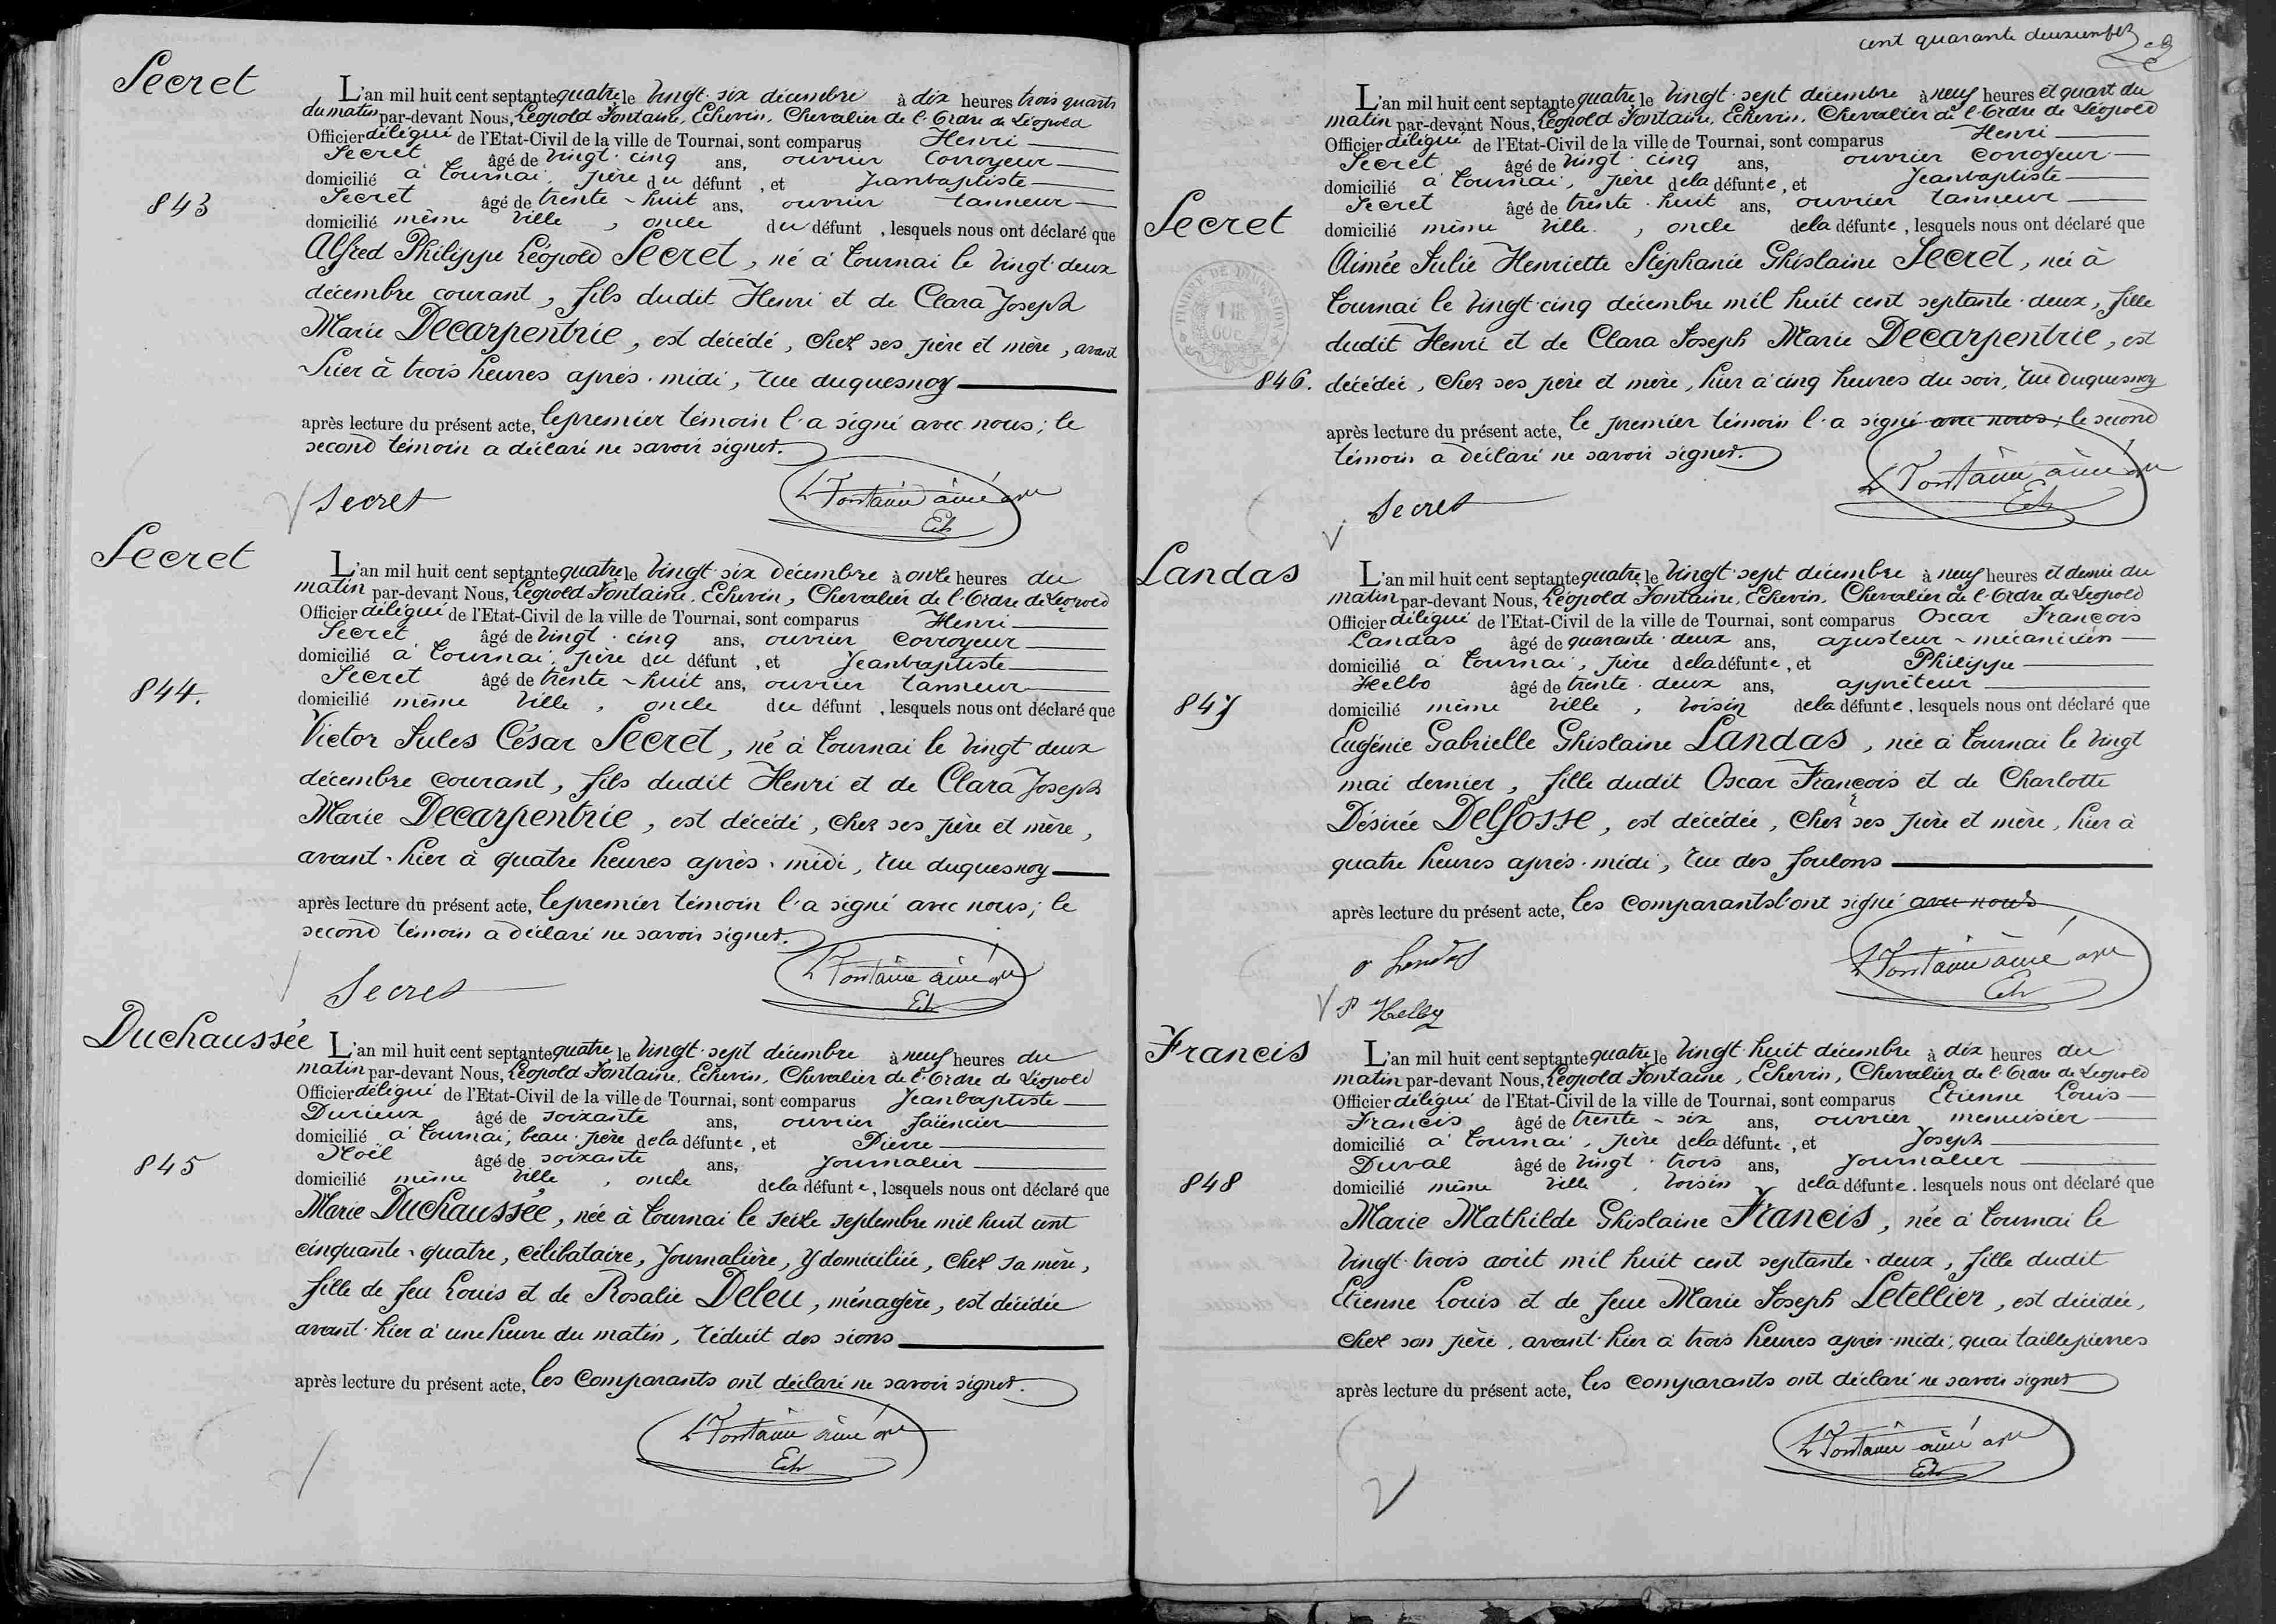 Secret
L'an mil huit cent septante quatre, le vingt-six décembre à dix heures trois quarts
du matin par-devant Nous, Léopold Fontaine, Echevin, Chevalier de l'Ordre de Léopold
Officier délégué de l'Etat-Civil de la ville de Tournai, sont comparus Henri
Secret âgé de vingt-cinq ans, ouvrier corroyeur
domicilié à Tournai, père du défunt, et Jeanbaptiste
843
Secret âgé de trente-huit ans, ouvrier tanneur
domicilié même ville, oncle du défunt, lesquels nous ont déclaré que
Alfred Philippe Léopold Secret, né à Tournai le vingt-deux
décembre courant, fils dudit Henri et de Clara Joseph
Marie Decarpentrie, est décédé, chez ses père et mère, avant
hier à trois heures après-midi, rue duquesnoy
après lecture du présent acte, le premier témoin l'a signé avec nous; le
second témoin a déclaré ne savoir signer.
Secret
L Fontaine ainé
Ech
Secret
L'an mil huit cent septante quatre, le vingt-six décembre à onze heures du
matin par-devant Nous, Léopold Fontaine, Echevin, Chevalier de l'Ordre de Léopold
Officier délégué de l'Etat-Civil de la ville de Tournai, sont comparus Henri
Secret âgé de vingt-cinq ans, ouvrier corroyeur
domicilié à Tournai, père du défunt, et Jeanbaptiste
844.
Secret âgé de trente-huit ans, ouvrier tanneur
domicilié même ville, oncle du défunt, lesquels nous ont déclaré que
Victor Jules César Secret, né à Tournai le vingt deux
décembre courant, fils dudit Henri et de Clara Joseph
Marie Decarpentrie, est décédé, chez ses père et mère,
avant-hier à quatre heures après-midi, rue duquesnoy
après lecture du présent acte, le premier témoin l'a signé avec nous; le
second témoin a déclaré ne savoir signer.
Secret
L Fontaine ainé
Ech
Duchaussée
L'an mil huit cent septante quatre, le vingt-sept décembre à neuf heures du
matin par-devant Nous, Léopold Fontaine, Echevin, Chevalier de l'Ordre de Léopold
Officier délégué de l'Etat-Civil de la ville de Tournai, sont comparus Jeanbaptiste
Durieux âgé de soixante ans, ouvrier faïencier
domicilié à Tournai, beau-père de la défunte, et Pierre
845
Noël âgé de soixante ans, journalier
domicilié même ville, oncle de la défunte, lesquels nous ont déclaré que
Marie Duchaussée, née à Tournai le seize septembre mil huit cent
cinquante-quatre, célibataire, journalière, y domiciliée, chez sa mère,
fille de feu Louis et de Rosalie Deleu, ménagère, est décédée
avant-hier à une heure du matin, réduit des sions
après lecture du présent acte, les comparants ont déclaré ne savoir signer.
L Fontaine ainé
Ech
cent quarante deuxième
L'an mil huit cent septante quatre, le vingt-sept décembre à neuf heures et quart du
matin par-devant Nous, Léopold Fontaine, Echevin, Chevalier de l'Ordre de Léopold
Officier délégué de l'Etat-Civil de la ville de Tournai, sont comparus Henri
Secret âgé de vingt-cinq ans, ouvrier corroyeur
domicilié à Tournai, père de la défunte, et Jeanbaptiste
Secret âgé de trente-huit ans, ouvrier tanneur
Secret
domicilié même ville, oncle de la défunte, lesquels nous ont déclaré que
Aimée Julie Henriette Stéphanie Ghislaine Secret, née à
Tournai le vingt-cinq décembre mil huit cent septante-deux, fille
dudit Henri et de Clara Joseph Marie Decarpentrie, est
846. décédée, chez ses père et mère, hier à cinq heures du soir, rue duquesnoy
après lecture du présent acte, le premier témoin l'a signé avec nous; le second
témoin a déclaré ne savoir signer.
Secret
L Fontaine ainé
Ech
Landas
L'an mil huit cent septante quatre, le vingt-sept décembre à neuf heures et demie du
matin par-devant Nous, Léopold Fontaine, Echevin, Chevalier de l'Ordre de Léopold
Officier délégué de l'Etat-Civil de la ville de Tournai, sont comparus Oscar François
Landas âgé de quarante-deux ans, ajusteur-mécanicien
domicilié à Tournai, père de la défunte, et Philippe
Helbo âgé de trente-deux ans, apprêteur
847
domicilié même ville, voisin de la défunte, lesquels nous ont déclaré que
Eugénie Gabrielle Ghislaine Landas, née à Tournai le vingt
mai dernier, fille dudit Oscar François et de Charlotte
Désirée Delfosse, est décédée, chez ses père et mère, hier à
quatre heures après-midi, rue des foulons
après lecture du présent acte, les comparants l'ont signé avec nous
o Landas
P Helbo
L Fontaine ainé
Ech
Francis
L'an mil huit cent septante quatre, le vingt-huit décembre à dix heures du
matin par-devant Nous, Léopold Fontaine, Echevin, Chevalier de l'Ordre de Léopold
Officier délégué de l'Etat-Civil de la ville de Tournai, sont comparus Etienne Louis
Francis âgé de trente-six ans, ouvrier menuisier
domicilié à Tournai, père de la défunte, et Joseph
Duval âgé de vingt-trois ans, journalier
848
domicilié même ville, voisin de la défunte, lesquels nous ont déclaré que
Marie Mathilde Ghislaine Francis, née à Tournai le
vingt-trois août mil huit cent septante-deux, fille dudit
Etienne Louis et de feue Marie Joseph Letellier, est décédée,
chez son père, avant-hier à trois heures après-midi, quai taillepierres
après lecture du présent acte, les comparants ont déclaré ne savoir signer
L Fontaine ainé
Ech